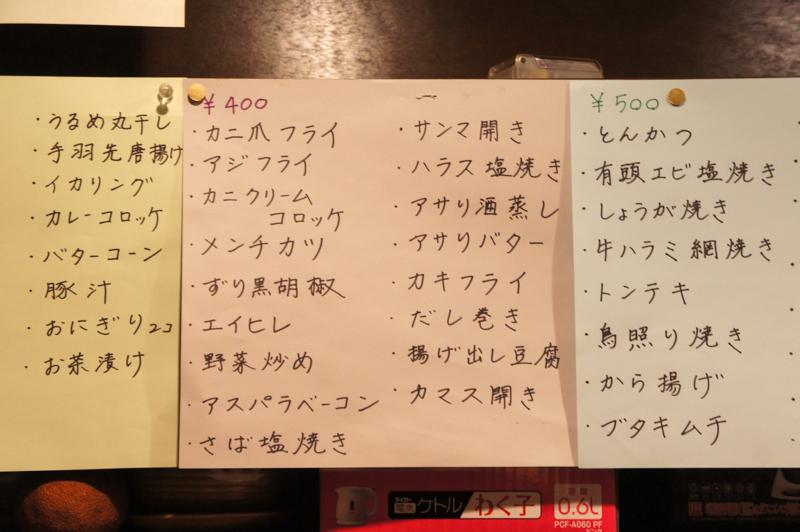 ・うるめ丸干し
・手羽先唐揚け
・イカリング
・カレーコロッケ
・バターコーン
・豚汁
・おにぎり2コ
・お茶漬け
¥400
・カニ爪フライ
・アジフライ
・カニクリーム
コロッケ
・メンチカツ
・ずり黒胡椒
・エイヒレ
・野菜炒め
・アスパラベーコン
・さば塩焼き
・サンマ開き
・ハラス塩焼き
・アサリ酒蒸し
・アサリバター
・カキフライ
・だし巻き
・揚げ出し豆腐
・カマス開き
¥500
・とんかつ
・有頭エビ塩焼き
・しょうが焼き
・牛ハラミ網焼き
・トンテキ
・鳥照り焼き
・から揚げ
・ブタキムチ
電気ケトル わく子
容量
0.6L
PCF-A060 PF